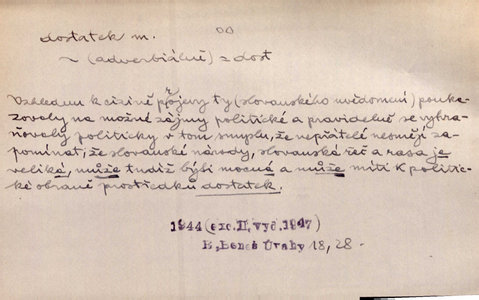 dostatek m.
~ (adverbiálně) = dost
Vzhledem k cizině projevy ty (slovanského uvědomění) pouka-
zovaly na možné zájmy politické a pravidelně se vyhra-
ňovaly politicky v tom smyslu, že nepřátelé nesmějí za-
pomínat, že slovanské národy, slovanská řeč a rasa je
veliká, může tudíž býti mocná a může míti k politic-
ké obraně prostředků dostatek.
1944 (exc. II. vyd. 1947)
E. Beneš Úvahy 18, 28.